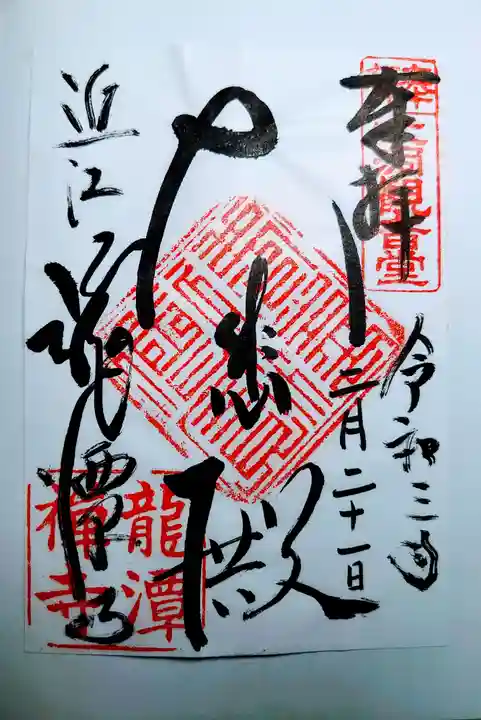 奉拝
観音堂
令和三年
二月二十一日
大悲殿
近江龍潭寺
龍潭
禅寺